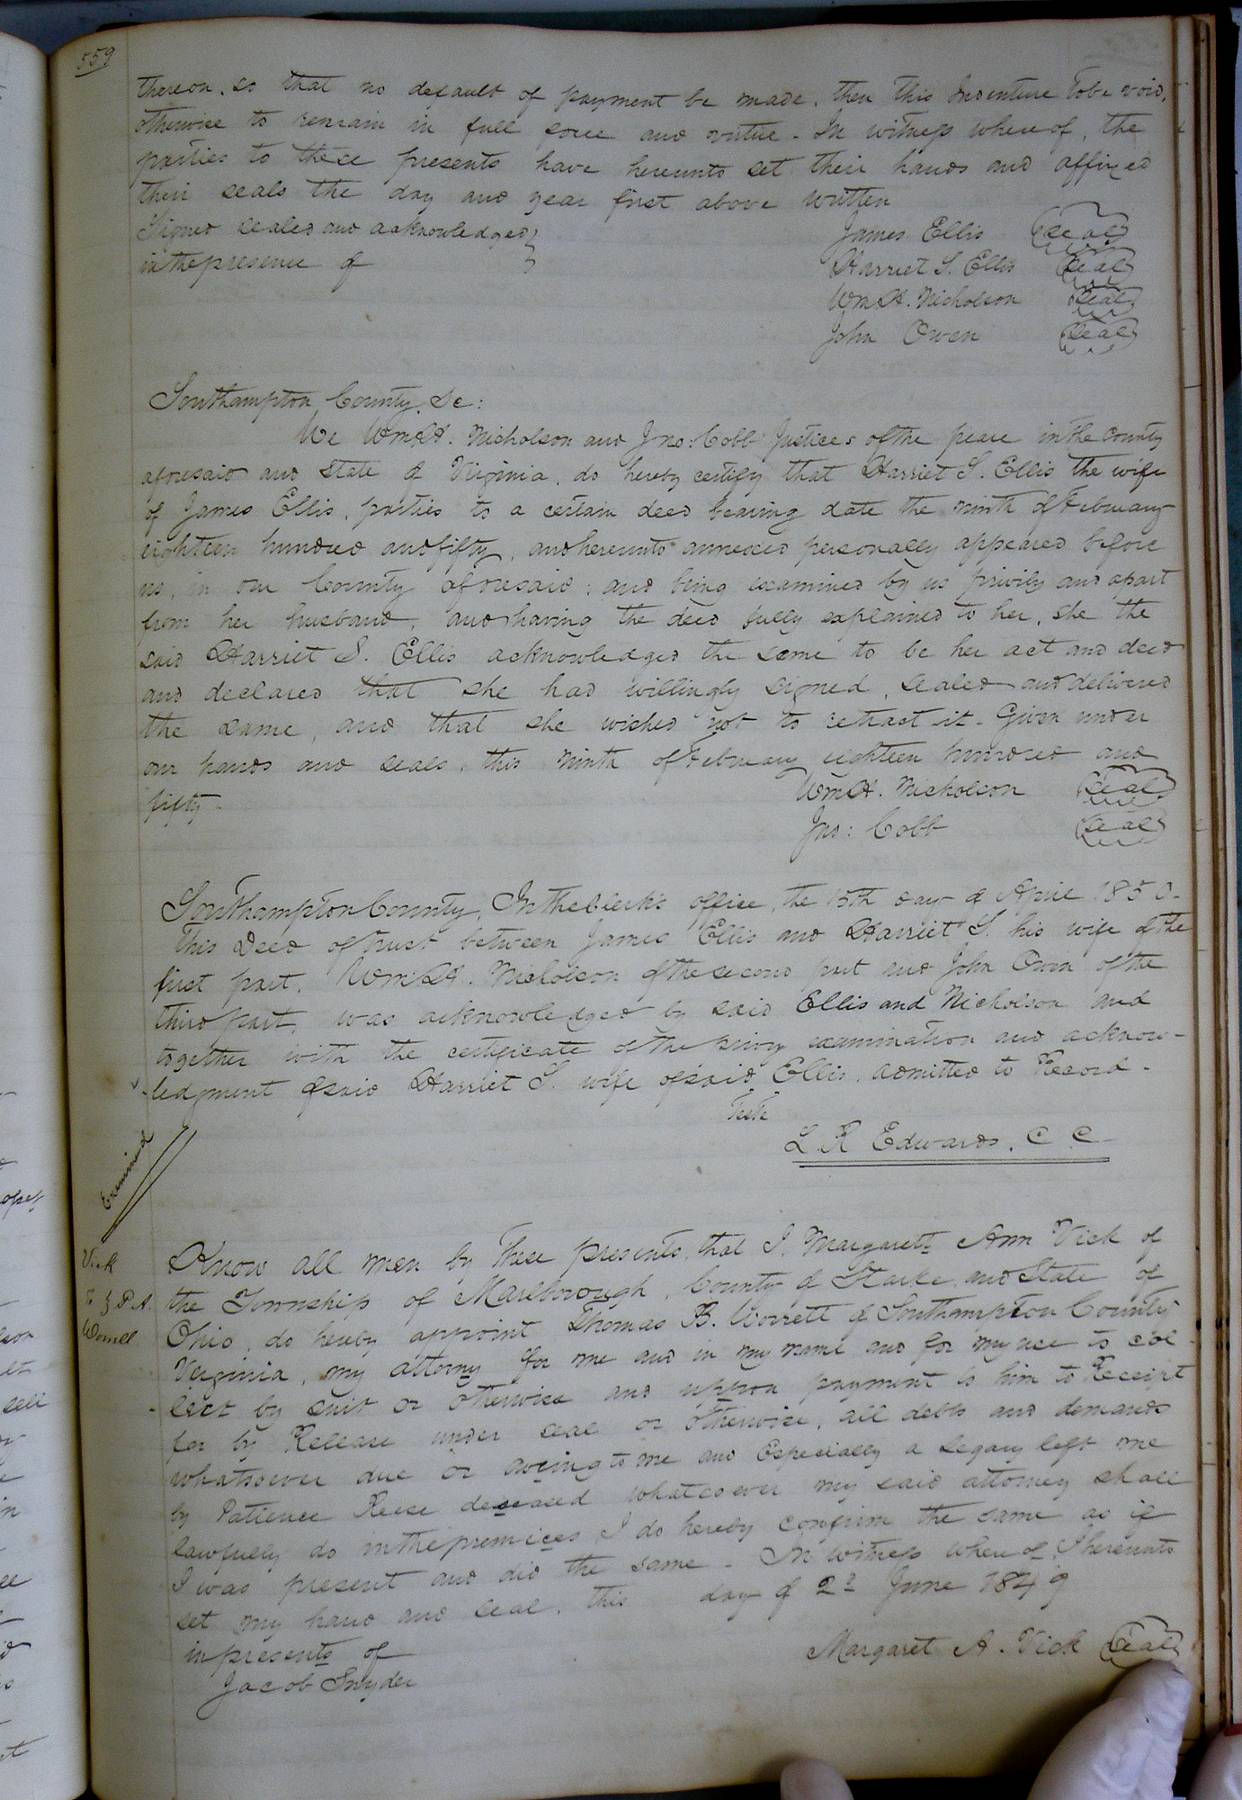 559
thereon, so that no default of payment be made, then this Indenture to be void,
otherwise to remain in full force and virtue - In witness whereof, the
parties to these presents have hereunto set their hands and affixed
their seals the day and year first above written
Signed sealed and acknowledged
in the presence of
James Ellis Seal
Harriet S. Ellis Seal
Wm H. Nicholson Seal
John Owen Seal
Southampton County, Sc:
We Wm H. Nicholson and Jno: Cobb Justices of the peace in the County
aforesaid and State of Virginia, do hereby certify that Harriet S. Ellis the wife
of James Ellis, parties to a certain deed bearing date the ninth of February
eighteen hundred and fifty, and hereunto annexed personally appeared before
us, in our County aforesaid; and being examined by us privily and apart
from her husband, and having the deed fully explained to her, she the
said Harriet S. Ellis acknowledged the same to be her act and deed
and declared that she had willingly signed, sealed and delivered
the same, and that she wished not to retract it - Given under
our hands and seals, this ninth of February eighteen hundred and
fifty -
Wm H. Nicholson Seal
Jno: Cobb Seal
Southampton County, In the Clerk's office, the 15th day of April 1850 -
This Deed of trust between James Ellis and Harriet S. his wife of the
first part, Wm H. Nicholson of the second part and John Owen of the
third part, was acknowledged by said Ellis and Nicholson and
together with the certificate of the privy examination and acknow-
ledgment of said Harriet S. wife of said Ellis, admitted to Record -
Teste
L R Edwards, C C
Examined
Vick
to P.A.
Worrell
Know all men by these presents, that I, Margarett Ann Vick of
the Township of Marlborough, County of Starke, and State of
Ohio, do hereby appoint Thomas B. Worrett of Southampton County
Virginia, my attorny for me and in my name and for my use to col
- lect by suit or otherwise and uppon payment to him to Receipt
for by Release under seal or otherwise, all debts and demands
whatsoever due or oweing to me and Especially a legacy left me
by Patience Reese deseased whatsoever my said attorney shall
lawfully do in the premices, I do hereby confirm the same as if
I was present and did the same - In witness whereof, I hereunto
set my hand and seal, this day of 2d June 1849
in presents of
Jacob Snyder
Margaret A. Vick Seal